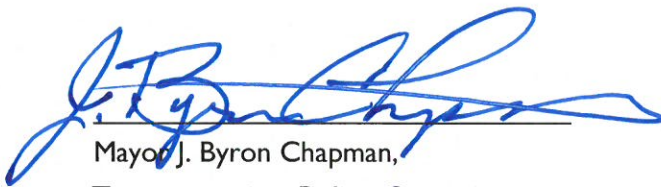 J. Byron Chapman
Mayor J. Byron Chapman,